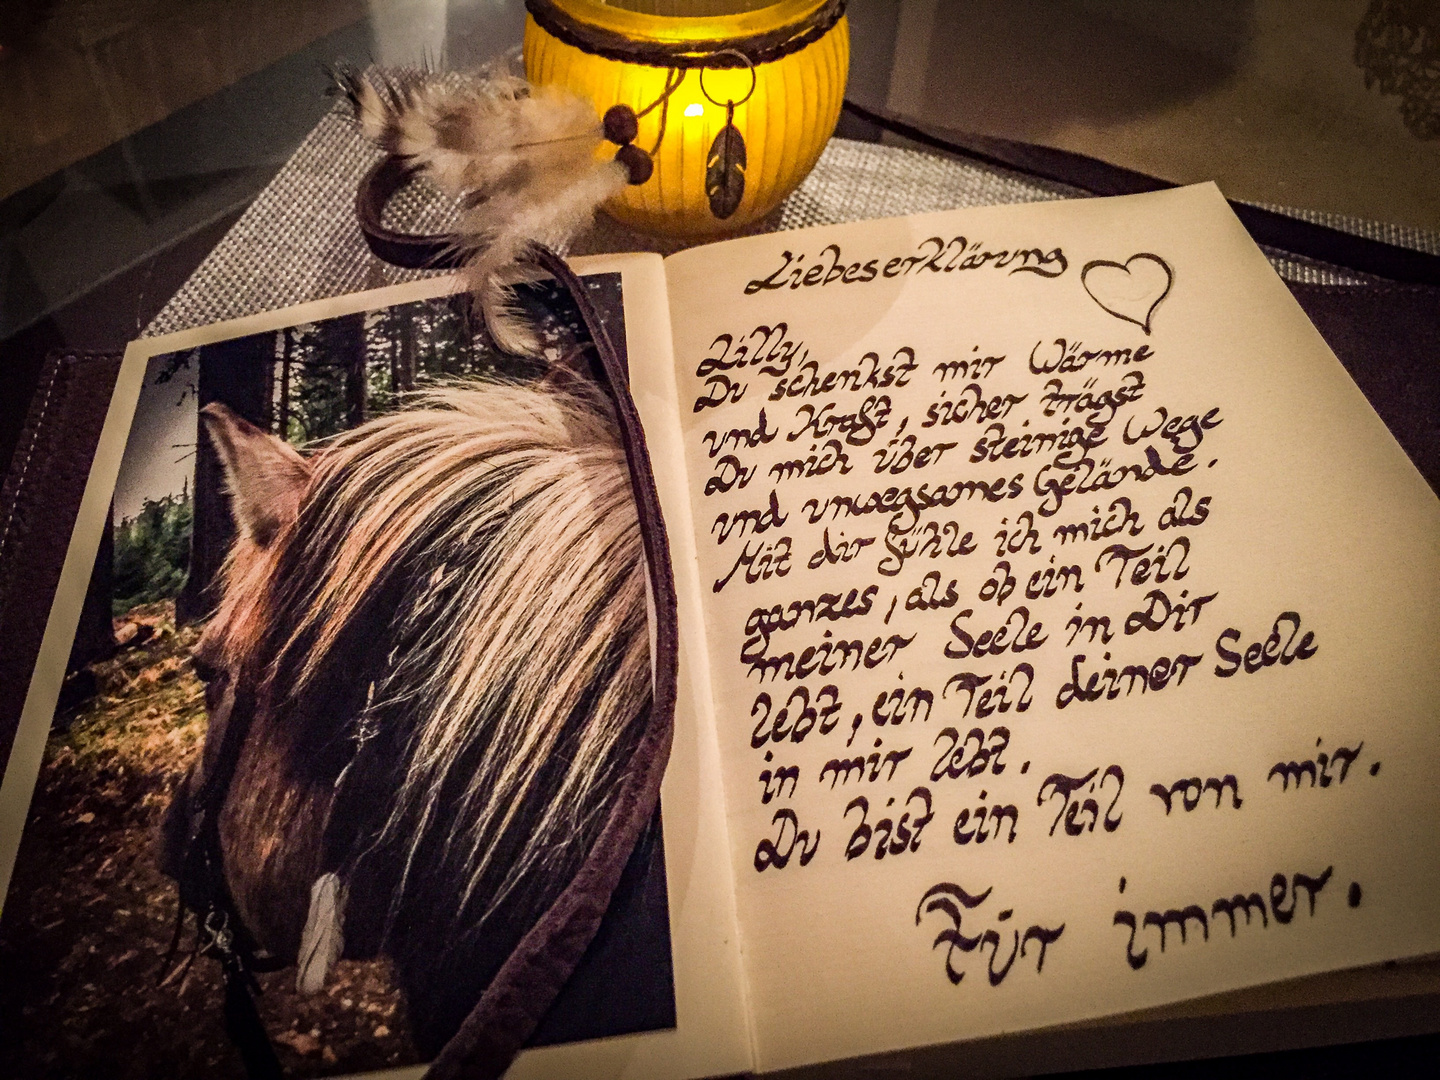 Liebeserklärung
Lilly,
Du schenkst mir Wärme
und Kraft, sicher trägst
Du mich über steinige Wege
und unwegsames Gelände.
Mit dir fühle ich mich als
ganzes, als ob ein Teil
meiner Seele in Dir
lebt, ein Teil deiner Seele
in mir lebt.
Du bist ein Teil von mir.
Für immer.